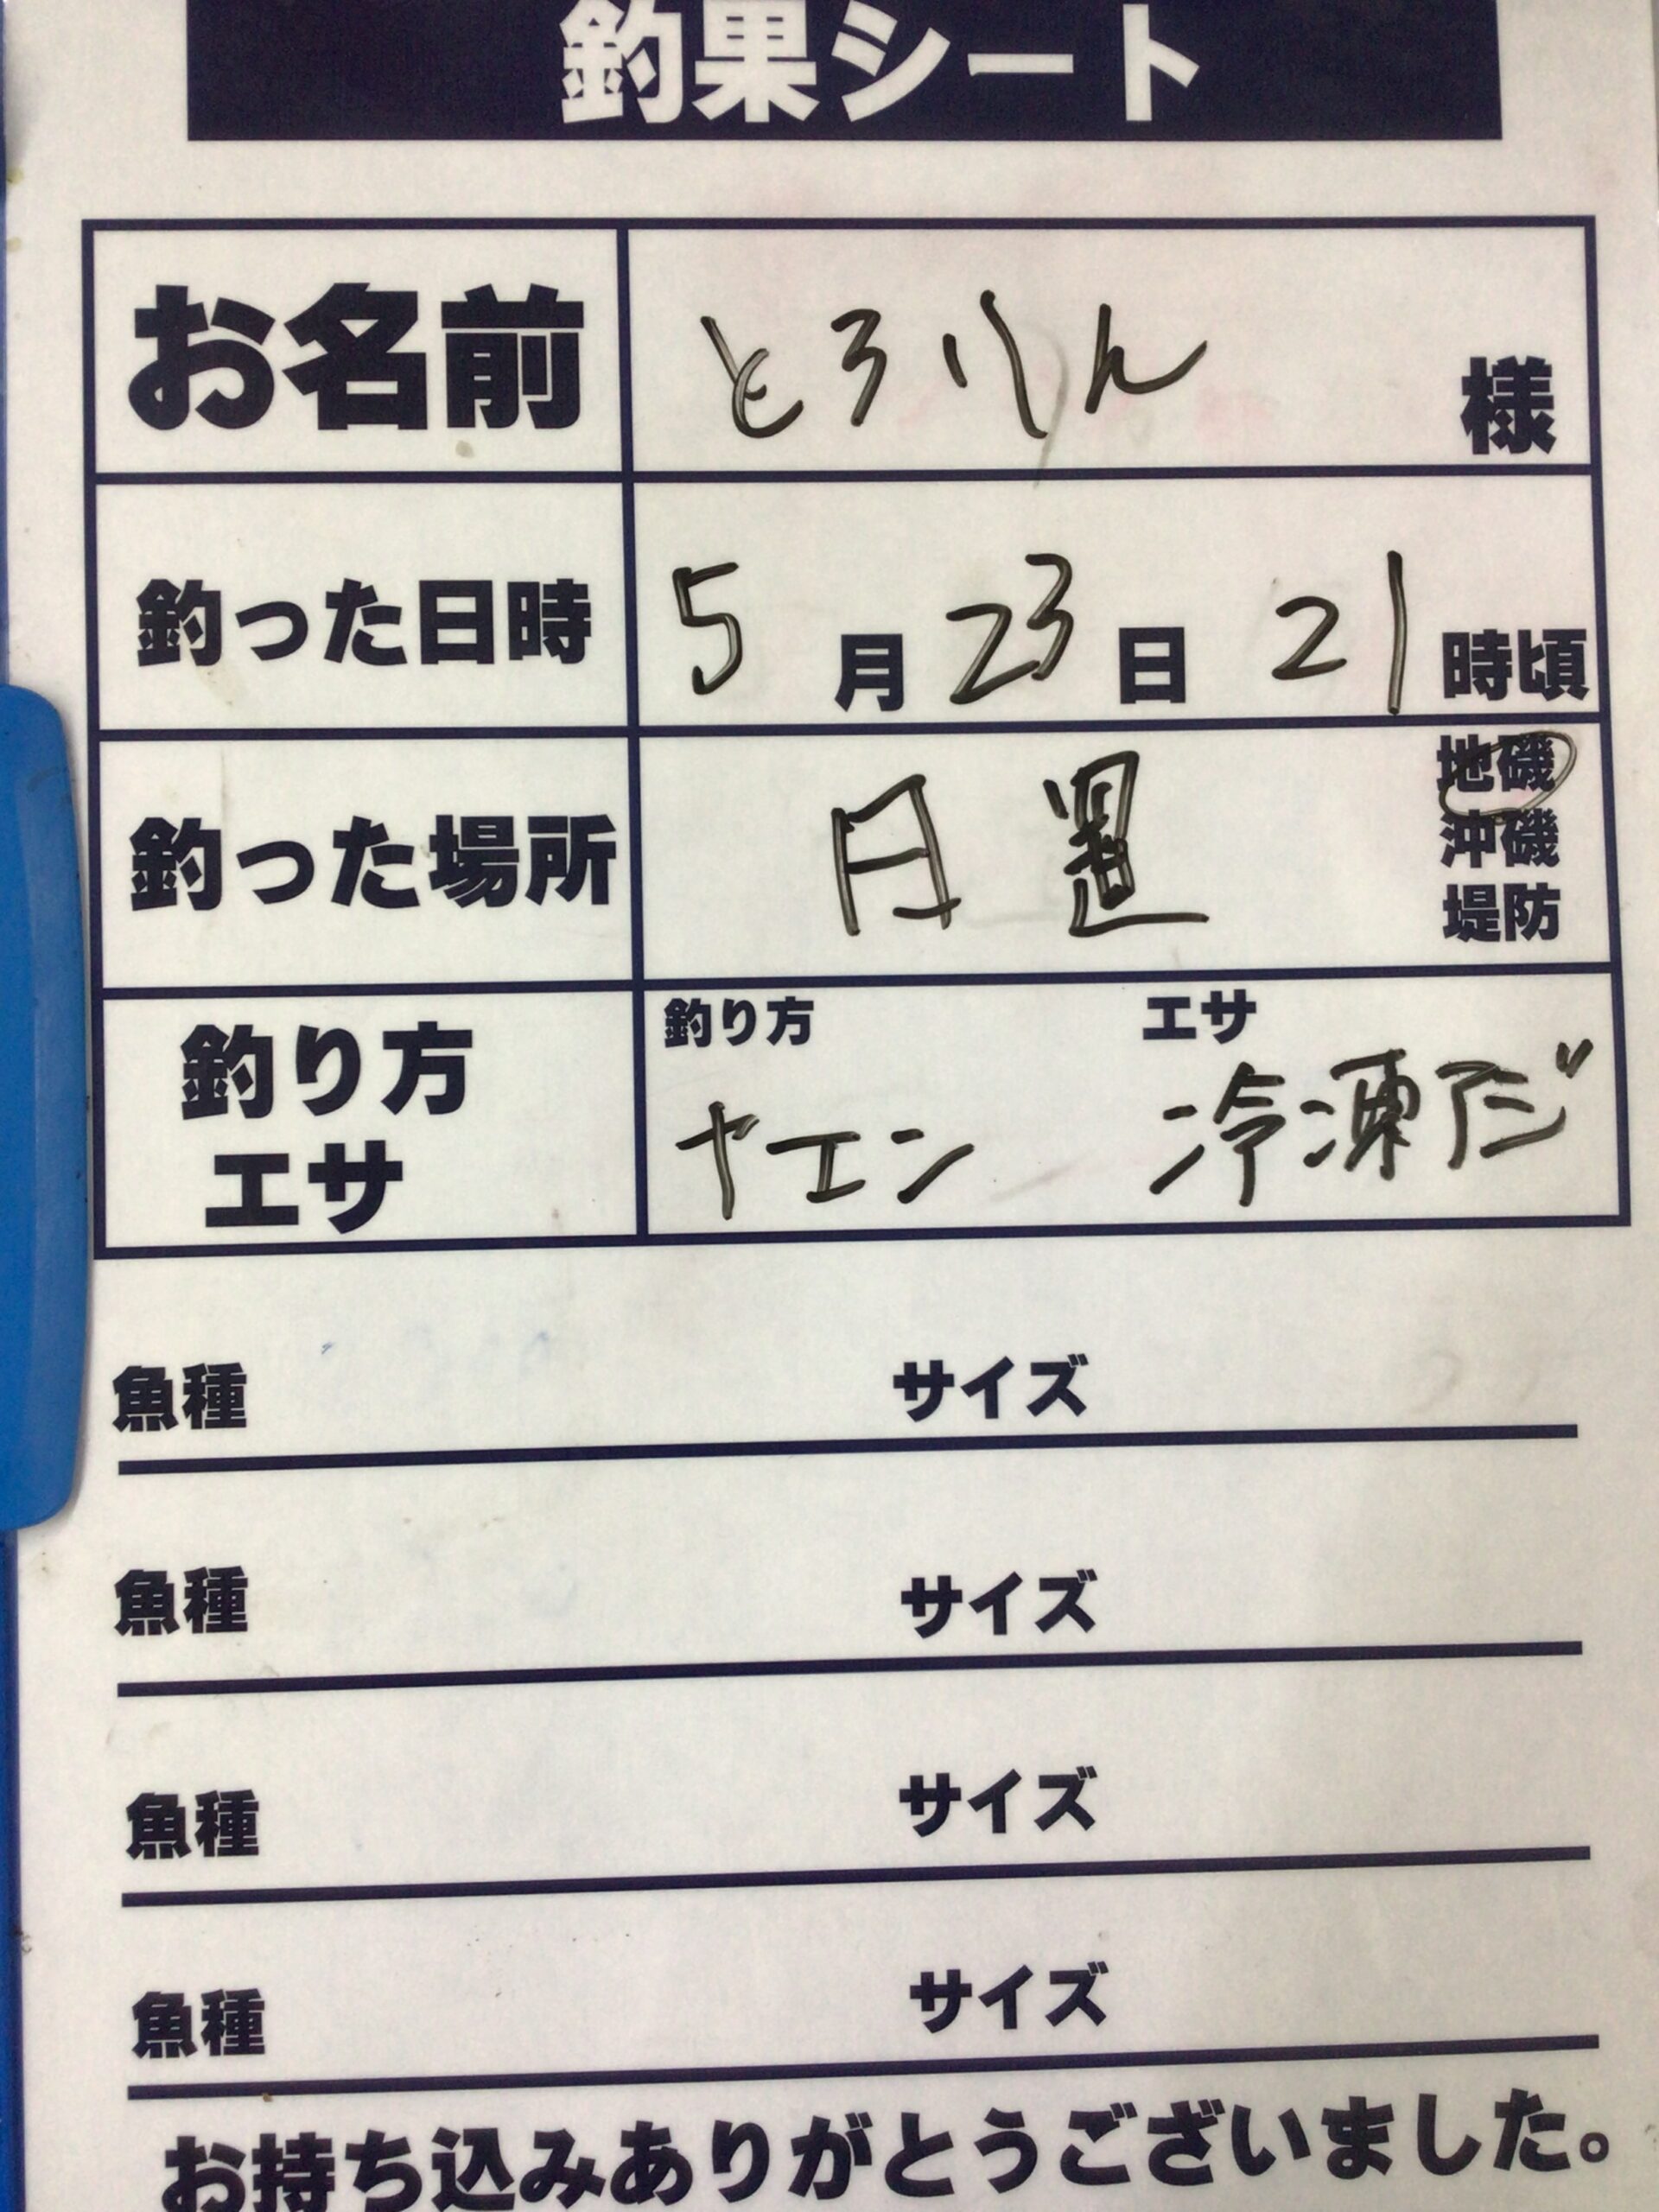 釣果シート
お名前 とろりん 様
釣った日時 5月23日 21時頃
釣った場所 日置 地磯
沖磯
堤防
釣り方 エサ
釣り方 ヤエン 冷凍アジ
エサ
魚種 サイズ
魚種 サイズ
魚種 サイズ
魚種 サイズ
お持ち込みありがとうございました。